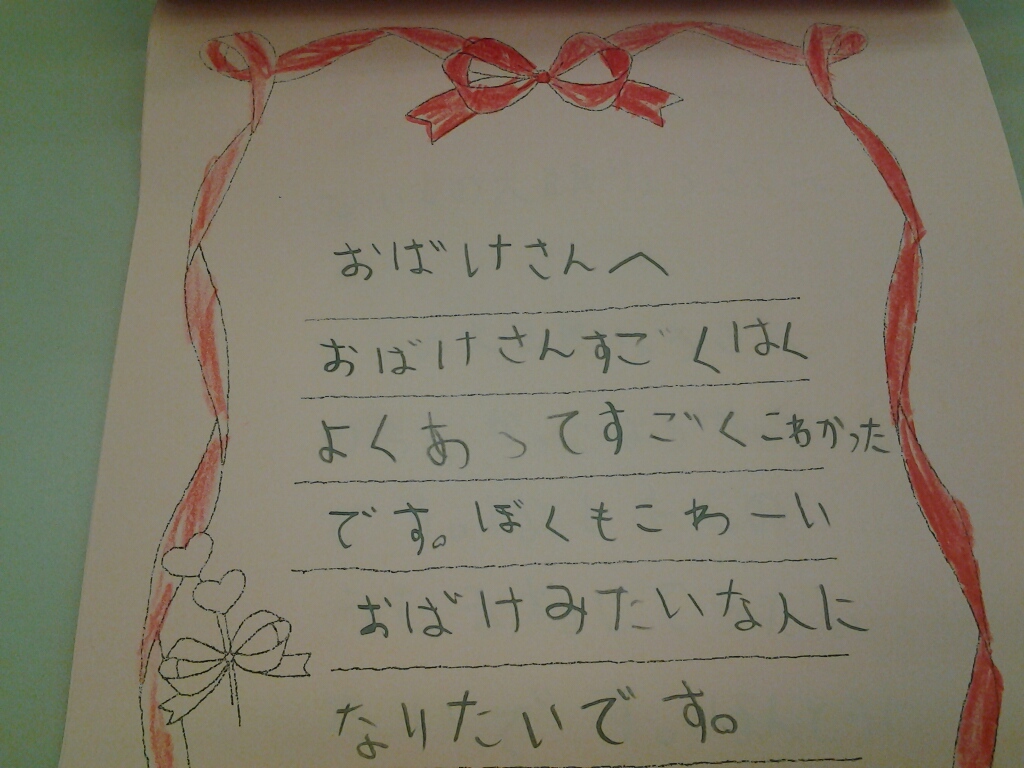 おばけさんへ
おばけさんすごくはく
よくあってすごくこわかった
です。ぼくもこわーい
おばけみたいな人に
なりたいです。